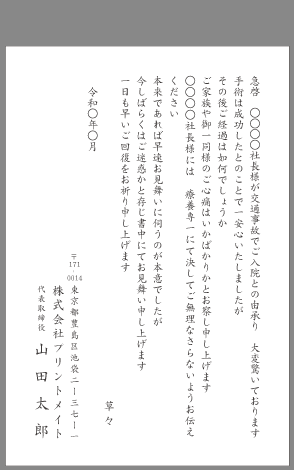 急啓　〇〇〇〇社長様が交通事故でご入院との由承り　大変驚いております
手術は成功したとのことで一安心いたしましたが
その後ご経過は如何でしょうか
ご家族や御一同様のご心痛はいかばかりかとお察し申し上げます
〇〇〇〇社長様には　療養専一にて決してご無理なさらないようお伝え
ください
本来であれば早速お見舞いに伺うのが本意でしたが
今しばらくはご迷惑かと存じ書中にてお見舞い申し上げます
一日も早いご回復をお祈り申し上げます
草々
令和〇年〇月
〒171-0014
東京都豊島区池袋二ー三七ー一
株式会社プリントメイト
代表取締役　山田太郎